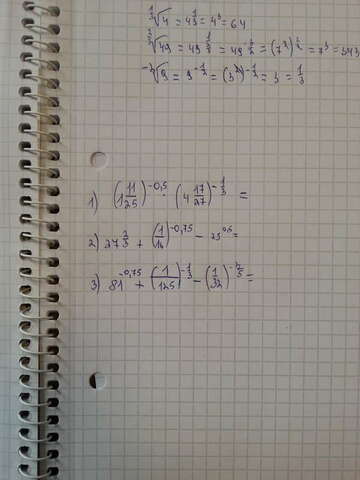 ∛4 = 4^1/3 = 4^3 = 64
√49 = 49 = 49^3/2 = (7^2)^3/2 = 7^3 = 343
^-2√9 = 9^-1/2 = (3^2)^-1/2 = 3 = 1/3
1) (1 11/25)^-0,5 · (4 17/27)^-1/3 =
2) 27^2/3 + (1/16)^-0,75 - 25^0,5 =
3) 81^-0,75 + (1/125)^-1/3 - (1/32)^-3/5 =